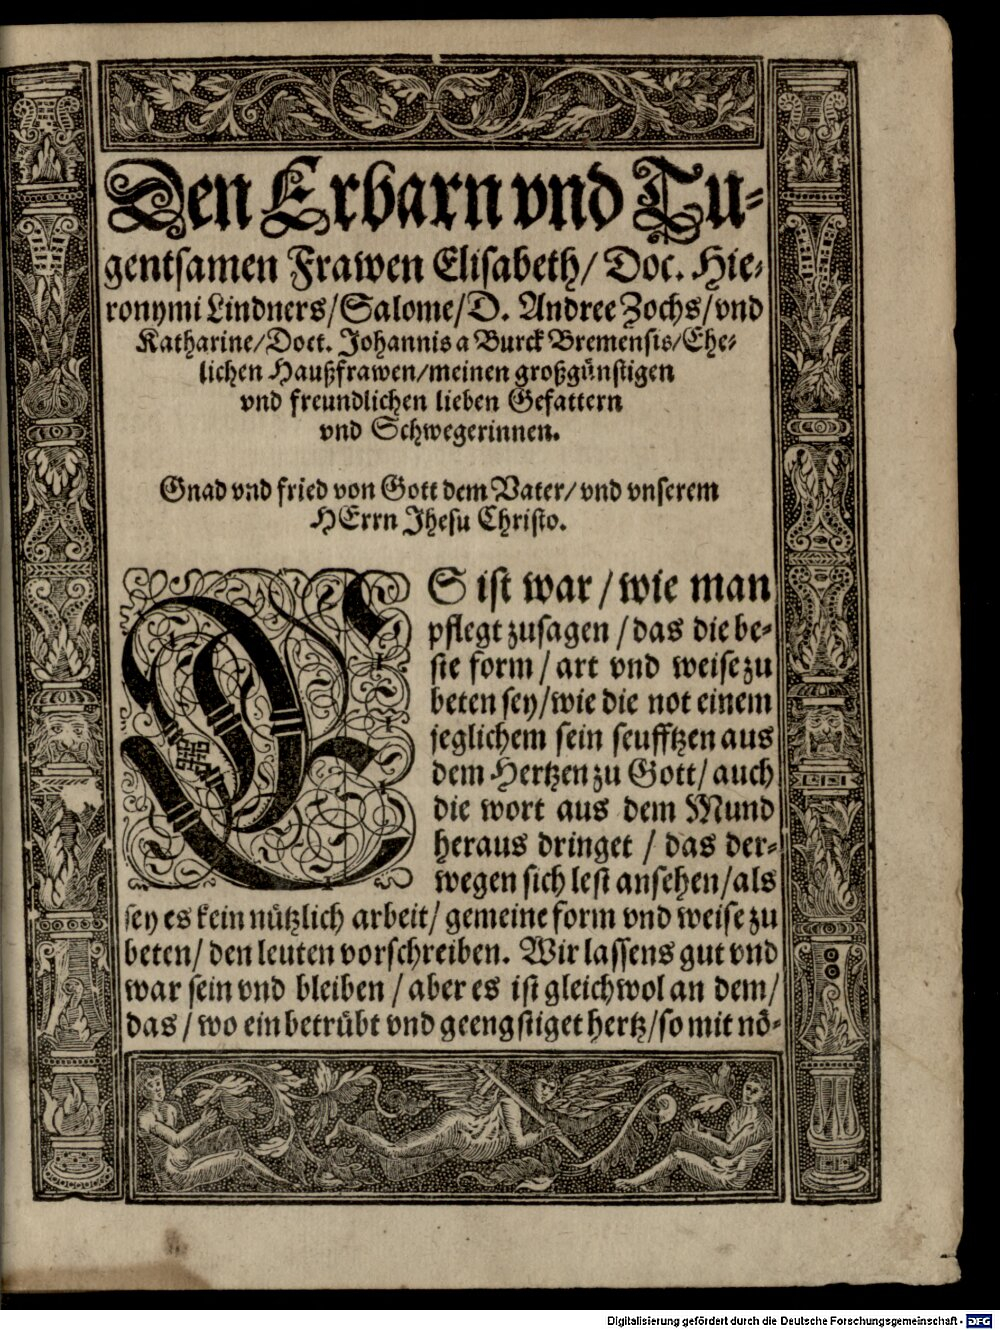 Den Erbarn vnd Tu-
gentsamen Frawen Elisabeth/ Doc. Hie-
ronymi Lindners/ Salome/ D. Andree Zochs/ vnd
Katharine/ Doct. Johannis a Burck Bremensis/ Ehe-
lichen Haußfrawen/ meinen großgünstigen
vnd freundlichen lieben Gefattern
vnd Schwegerinnen.
Gnad vnd fried von Gott dem Vater/ vnd vnserem
HErrn Jhesu Christo.
ES ist war / wie man
pflegt zusagen / das die be-
ste form / art vnd weise zu
beten sey/ wie die not einem
jeglichem sein seufftzen aus
dem Hertzen zu Gott/ auch
die wort aus dem Mund
heraus dringet / das der-
wegen sich lest ansehen/ als
sey es kein nützlich arbeit/ gemeine form vnd weise zu
beten/ den leuten vorschreiben. Wir lassens gut vnd
war sein vnd bleiben / aber es ist gleichwol an dem/
das / wo ein betrübt vnd geengstiget hertz/ so mit nö-
Digitalisierung gefördert durch die Deutsche Forschungsgemeinschaft - DFG